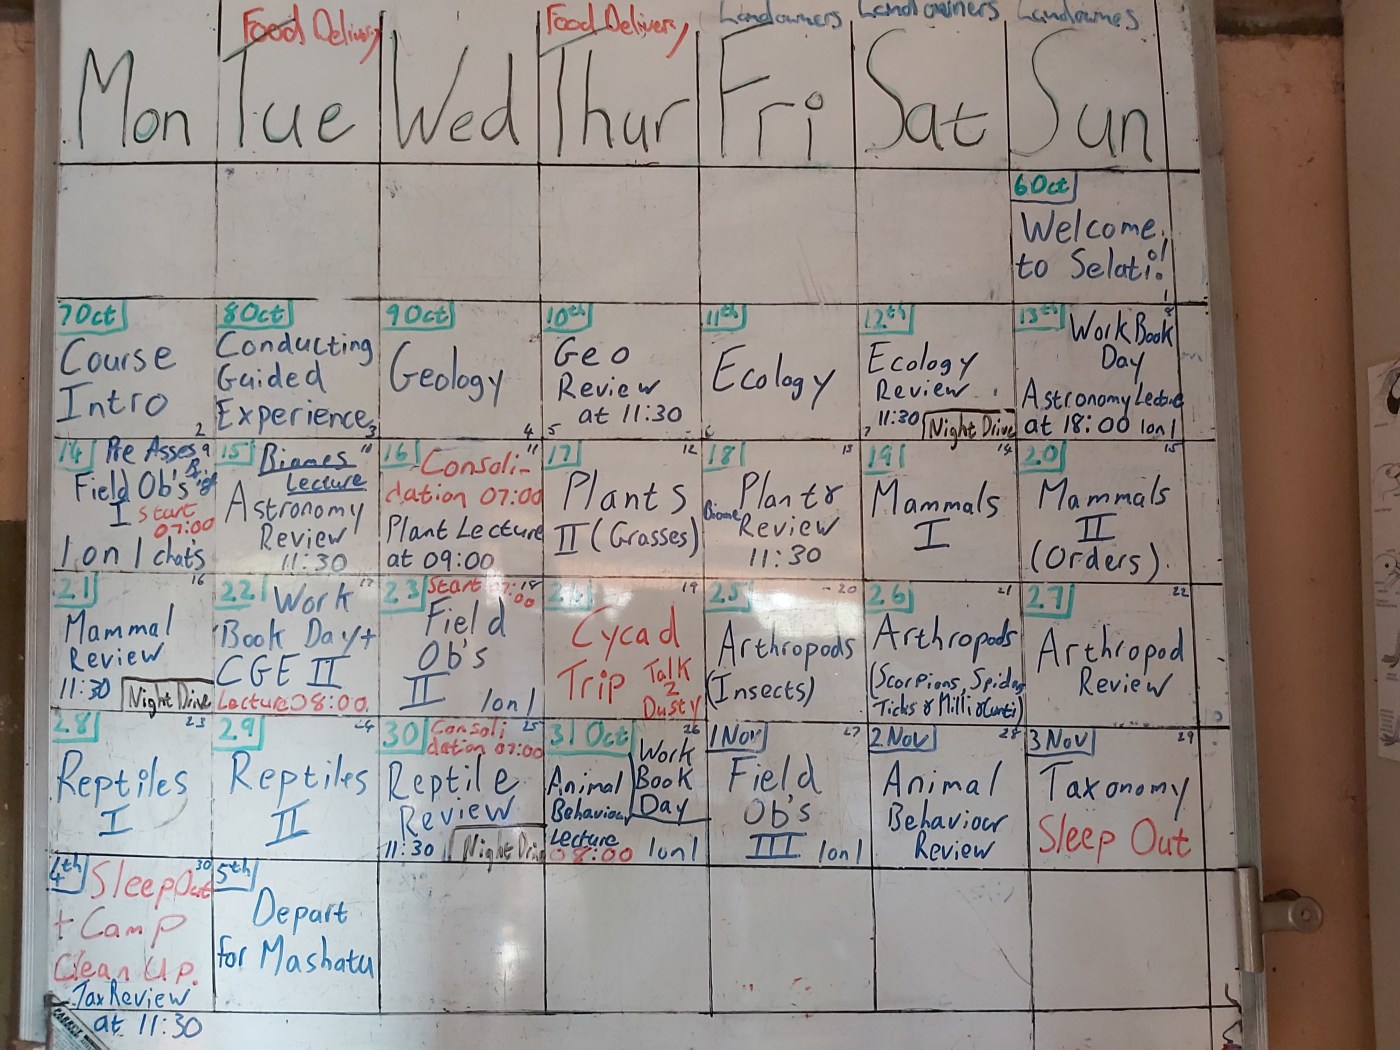 Food Delivery
Food Delivery
Landowners
Landowners
Landownes
Mon
Tue
Wed
Thur
Fri
Sat
Sun
6 Oct
Welcome
to Selati!
1
7 Oct
Course
Intro
2
8 Oct
Conducting
Guided
Experience
3
9 Oct
Geology
4
10th
Geo
Review
at 11:30
5
11th
Ecology
6
12th
Ecology
Review
11:30
Night Drive
7
13th
8
Work Book
Day
Astronomy Lecture
at 18:00 1on1
14
Pre Asses
9
Field Ob's
I
Start
07:00
1on1 chats
15
Biomes
10
Lecture
Astronomy
Review
11:30
16
11
Consoli-
dation 07:00
Plant Lecture
at 09:00
17
12
Plants
II (Grasses)
18
13
Biome
Plant &
Review
11:30
19
14
Mammals
I
20
15
Mammals
II
(Orders).
21
16
Mammal
Review
11:30
Night Drive
22
17
Work
Book Day +
CGE II
Lecture 08:00.
23
Start 07:00
18
Field
Ob's
II
1on1
24
19
Cycad
Trip
Talk
2
Dusty
25
20
Arthropods
(Insects)
26
21
Arthropods
(Scorpions, Spider,
Ticks & Milli & Centi)
27
22
Arthropod
Review
28
23
Reptiles
I
29
24
Reptiles
II
30
25
Consoli
dation 07:00
Reptile
Review
11:30
Night Drive
31 Oct
26
Work
Book
Day
Animal
Behaviour
Lecture
08:00
1on1
1 Nov
27
Field
Ob's
III
1on1
2 Nov
28
Animal
Behaviour
Review
3 Nov
29
Taxonomy
Sleep Out
4th
30
Sleep Out
+ Camp
Clean Up.
Tax Review
at 11:30
5th
Depart
for Mashatu